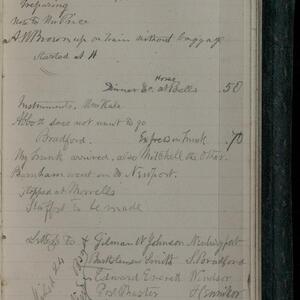 Preparing
note to Mr Price
A. W. Brown up on train without baggage
Started at H
Horse
Dinner &c. at Bells .50
Instruments,
Abbott does not want to go
Bradford. Express on trunk .70
My trunk arrived, also Mitchell the other.
Burnham went on to Newport.
Stopped at Morrells
Staff to be made
Letters to Gilman W Johnson Newburyport
Bartholomew Smith S. Bradford
Edward Everett Windsor
Post Master